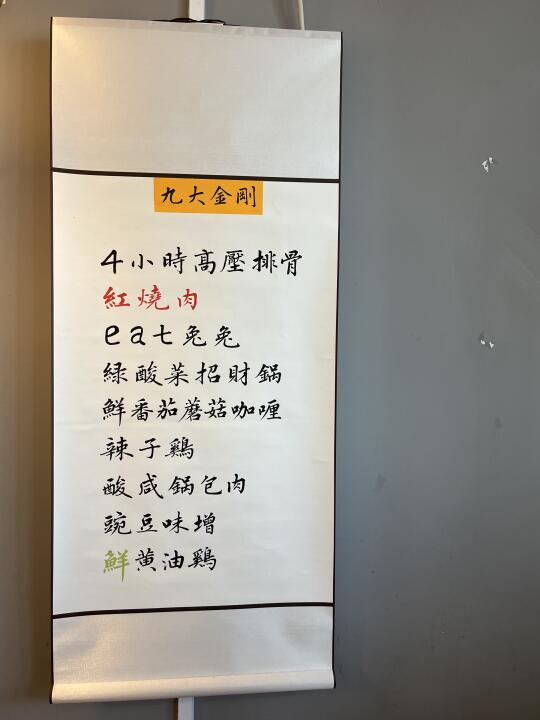 九大金剛
4小時高壓排骨
紅燒肉
eat兔兔
緑酸菜招財鍋
鮮番茄蘑菇咖喱
辣子鷄
酸咸鍋包肉
豌豆味增
鮮黄油鷄